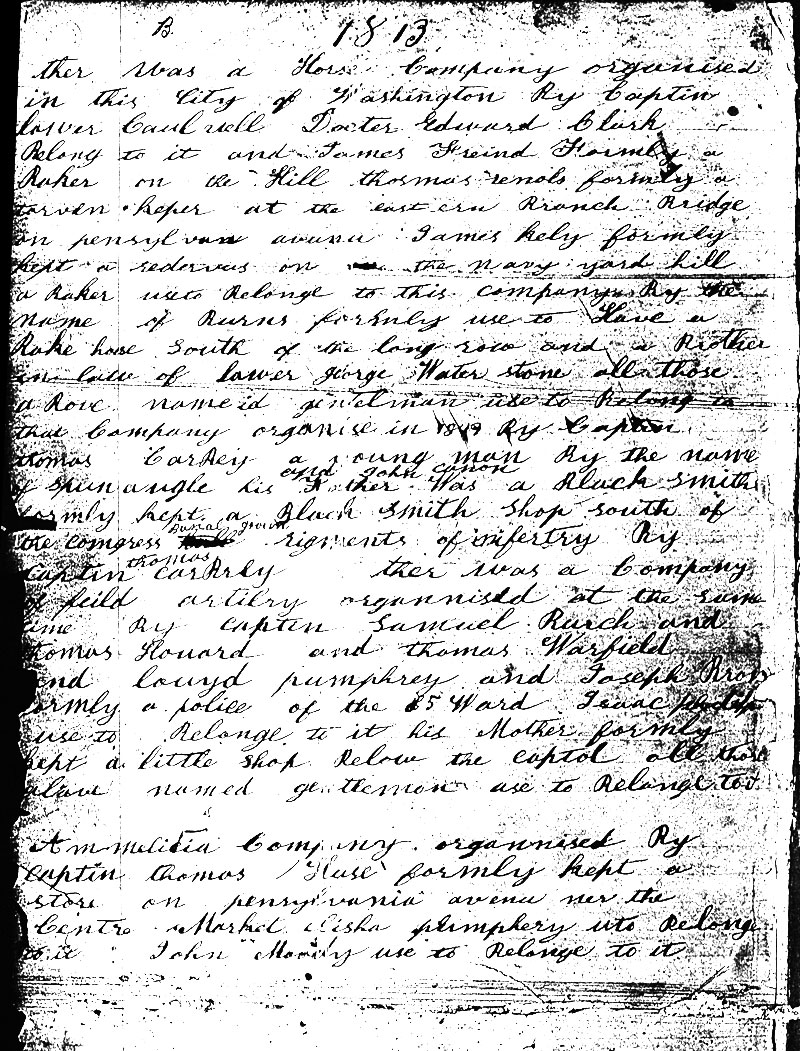 B.
1813
ther was a Horse Company organised
in this City of Washington By Captin
lower Caulwell Docter Edward Clark
Belong to it and James Freind Formly a
Baker on the Hill thosmas renols formly a
torven keper at the eastern Branch Bridge
on pensylvan avanu James kely formly
kept a redervus on the navy yard hill
a Baker useto Belonge to this company By the
name of Burns formly use to Have a
Bake house South of the long row and a Brother
in law of lower george Water stone all those
a Bove nameid gentelman use to Belong to
that Company organise in By Captin
thomas CarBey a young man By the name
and John canon
of spunangle his Father Was a Black Smith
formly kept a Black Smith Shop south of
burial ground
the Comgress rigments of infertry By
thomas
Captin CarBrly ther was a Company
of feild artilry organnised at the same
time By Captin Samuel Burch and
thomas Houard and thomas Warfield
and louyd pumphrey and Joseph Brown
formly a police of the 5 Ward Isaac
use to Belonge to it his Mother formly
kept a little shop Below the captol all those
aBove named gentlemon use to Belonge to it
Am melitia Company organnised By
Captin thomas Huse formly kept a
store on pensylvania avenu ner the
Centre Market elisha plumphery uto Belonge
to it John Moody use to Belonge to it